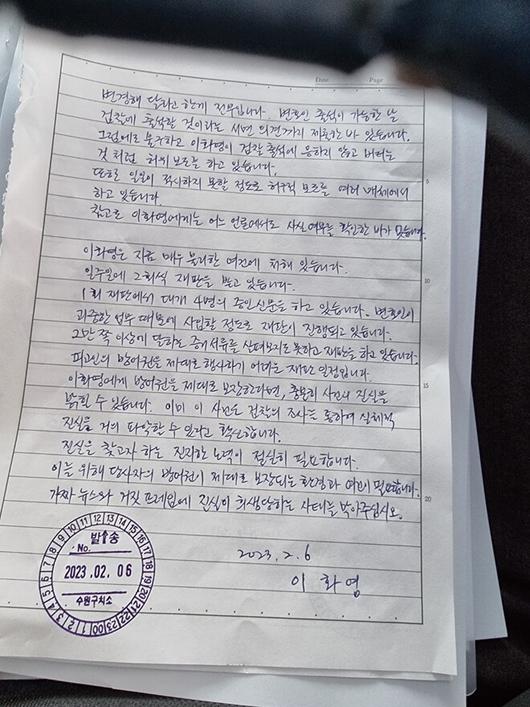 Date Page
변경해 달라고 한게 전부입니다. 변호인 출석이 가능한 날
검찰에 출석할 것이라는 서면 의견까지 제출한 바 있습니다.
그럼에도 불구하고 이화영이 검찰 출석에 응하지 않고 버티는
것 처럼 허위 보도를 하고 있습니다.
또한 일일이 적시하지 못할 정도로 허구적 보도를 여러 매체에서
하고 있습니다.
참고로 이화영에게는 어느 언론에서도 사실 여부를 확인한 바가 없습니다.
이화영은 지금 매우 불리한 여건에 처해 있습니다.
일주일에 2회씩 재판을 받고 있습니다.
1회 재판에서 대개 4명의 증인신문을 하고 있습니다. 변호인이
과중한 업무 때문에 사임할 정도로 재판이 진행되고 있습니다.
2만 쪽 이상에 달하는 증거서류를 살펴보지도 못하고 재판을 하고 있습니다.
피고인의 방어권을 제대로 행사하기 어려운 재판 일정입니다.
이화영에게 방어권을 제대로 보장한다면, 충분히 사건의 진실을
밝힐 수 있습니다. 이미 이 사건도 검찰의 조사를 통하여 실체적
진실을 거의 파악할 수 있다고 확신합니다.
진실을 찾고자 하는 진지한 노력이 절실히 필요합니다.
이를 위해 당사자의 방어권이 제대로 보장되는 환경과 여건이 필요합니다.
가짜 뉴스와 거짓 프레임에 진실이 희생당하는 사태를 막아주십시오.
2023. 2. 6
이 화 영
5
10
15
20
발송
No.
2023. 02. 06
수원구치소